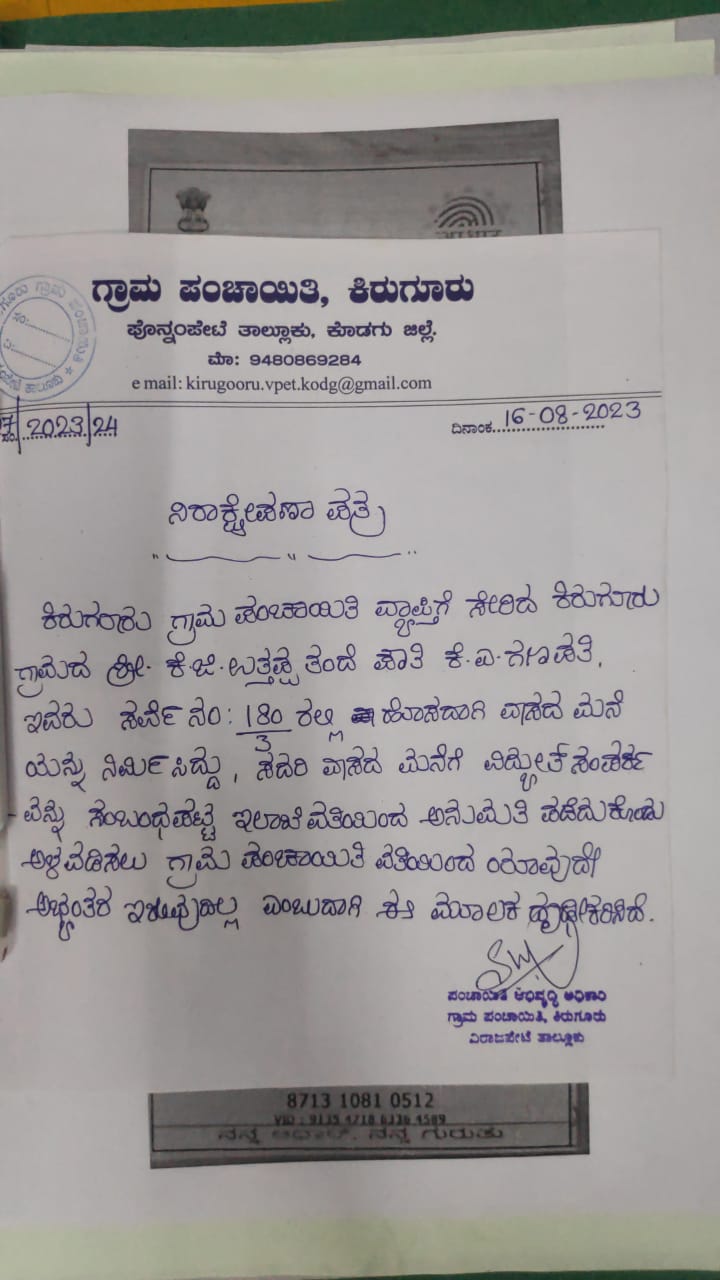 ಗ್ರಾಮ ಪಂಚಾಯಿತಿ, ಕಿರುಗೂರು
ಪೊನ್ನಂಪೇಟೆ ತಾಲ್ಲೂಕು, ಕೊಡಗು ಜಿಲ್ಲೆ.
ಮೊ: 9480869284
e mail: kirugooru.vpet.kodg@gmail.com
2023/24
ದಿನಾಂಕ 16-08-2023
ನಿರಾಕ್ಷೇಪಣಾ ಪತ್ರ
ಕಿರುಗೂರು ಗ್ರಾಮ ಪಂಚಾಯಿತಿ ವ್ಯಾಪ್ತಿಗೆ ಸೇರಿದ ಕಿರುಗೂರು
ಗ್ರಾಮದ ಶ್ರೀ. ಕೆ.ಜಿ. ಉತ್ತಪ್ಪ ತಂದೆ ಪೌತಿ ಕೆ.ಎ.ಗಣಪತಿ,
ಇವರು ಸರ್ವೆ ನಂ: 180/3 ರಲ್ಲಿ ಹೊಸದಾಗಿ ವಾಸದ ಮನೆ
ಯನ್ನು ನಿರ್ಮಿಸಿದ್ದು, ಸದರಿ ವಾಸದ ಮನೆಗೆ ವಿದ್ಯುತ್ ಸಂಪರ್ಕ
-ವನ್ನು ಸಂಬಂಧಪಟ್ಟ ಇಲಾಖೆ ವತಿಯಿಂದ ಅನುಮತಿ ಪಡೆದುಕೊಂಡು
ಅಳವಡಿಸಲು ಗ್ರಾಮ ಪಂಚಾಯಿತಿ ವತಿಯಿಂದ ಯಾವುದೇ
ಅಭ್ಯಂತರ ಇರುವುದಿಲ್ಲ ಎಂಬುದಾಗಿ ಈ ಮೂಲಕ ದೃಢೀಕರಿಸಿದೆ.
ಪಂಚಾಯಿತಿ ಅಭಿವೃದ್ಧಿ ಅಧಿಕಾರಿ
ಗ್ರಾಮ ಪಂಚಾಯಿತಿ, ಕಿರುಗೂರು
ವಿರಾಜಪೇಟೆ ತಾಲ್ಲೂಕು
8713 1081 0512
VID : 9135 4718 6336 4589
ನನ್ನ ಆಧಾರ್, ನನ್ನ ಗುರುತು